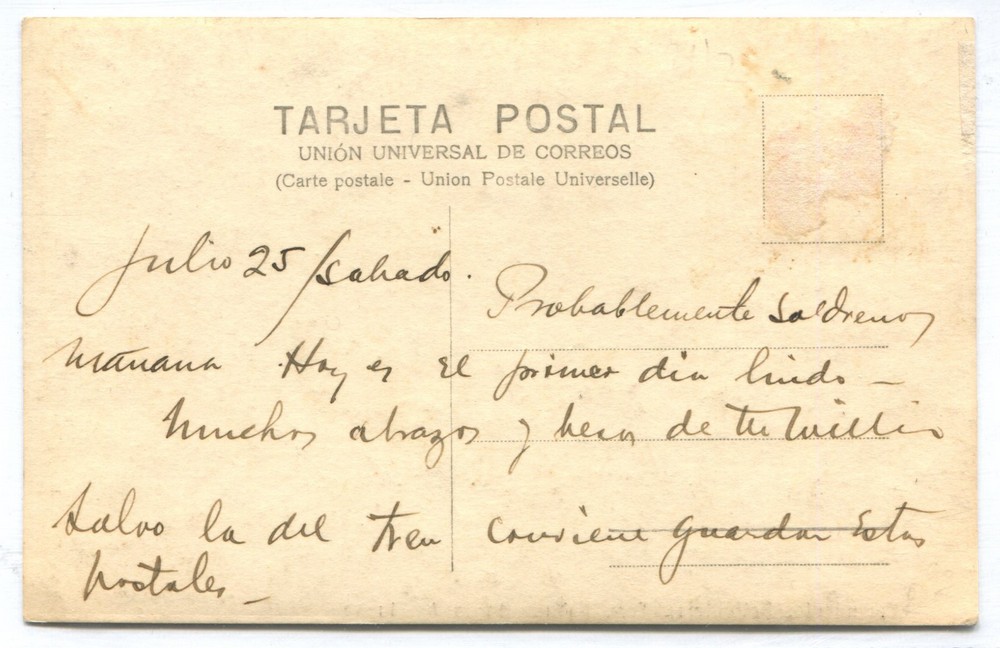 TARJETA POSTAL
UNIÓN UNIVERSAL DE CORREOS
(Carte postale - Union Postale Universelle)
Julio 25/sabado.
Probablemente Saldremos
mañana Hoy es el primer dia lindo -
Muchos abrazos y besos de tu Willie
Salvo la del tren conviene guardar Estas
postales -